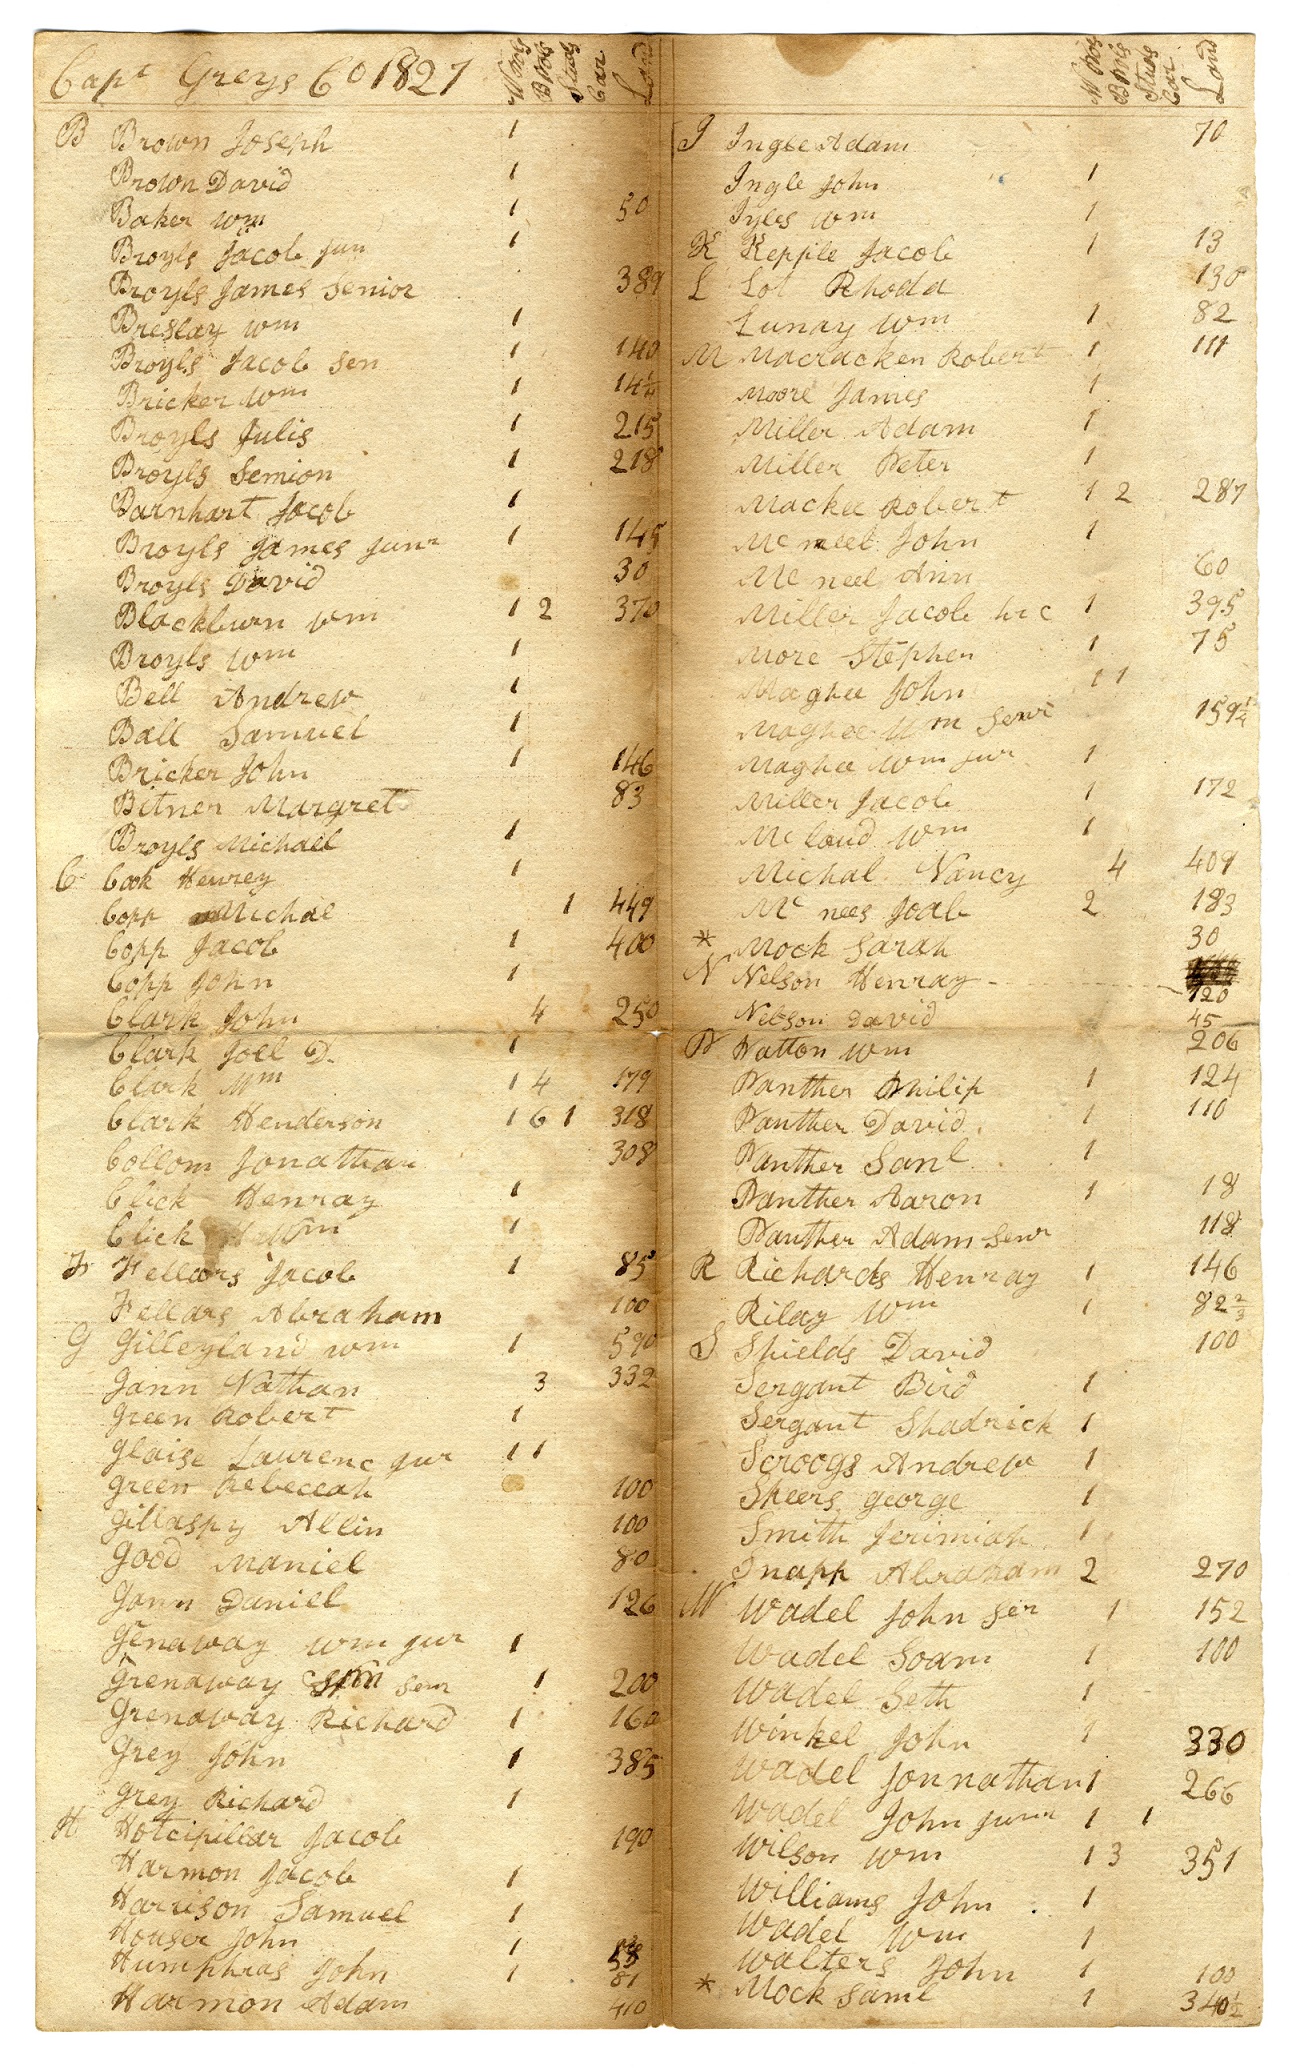 Capt Greys Co 1827 W Pols B Pols Studs Car Land
B Brown Joseph 1
Brown David 1
Baker Wm 1 50
Broyls Jacob Jun 1
Broyls James Senior 389
Breslay Wm 1
Broyls Jacob Sen 1 140
Bricker Wm 1 14 1/4
Broyls Julis 1 215
Broyls Semion 1 218
Barnhart Jacob 1
Broyls James Junr 1 145
Broyls David 30
Blackburn Wm 1 2 370
Broyls Wm 1
Bell Andrew 1
Ball Samuel 1
Bricker John 1 146
Bitner Margret 83
Broyls Michael 1
C Cook Henrey 1
Copp Michal 1 449
Copp Jacob 1 400
Copp John 1
Clark John 4 250
Clark Joel D. 1
Clark Wm 1 4 179
Clark Henderson 1 6 1 318
Collom Jonathan 308
Click Henray 1
Click Wm 1
F Fellars Jacob 1 85
Fellars Abraham 100
G Gilleyland Wm 1 590
Gann Nathan 3 332
Green Robert 1
Glaise Laurenc Jur 1 1
Green Rebeccah 100
Gillaspy Allin 100
Good Maniel 80
Gann Daniel 126
Genaway Wm Jur 1
Grenaway Wm Sem 1 200
Grenaway Richard 1 160
Grey John 1 385
Grey Richard 1
H Hotcipillar Jacob 190
Harmon Jacob 1
Harrison Samuel 1
Houser John 1 58
Humphras John 1 81
Harmon Adam 410
W Pols B Pols Studs Car Land
I Ingle Adam 70
Ingle John 1
Iyles Wm 1
K Kepple Jacob 1 13
L Lot Rhoda 130
Lunay Wm 1 82
M Macracken Robert 1 111
Moore James 1
Miller Adam 1
Miller Peter 1
Mackee Robert 1 2 287
Mc neel John 1
Mc neel Ann 60
Miller Jacob 1 395
More Stephen 1 75
Maghee John 1 1
Maghee Wm Senr 159 1/4
Maghee Wm Jur 1
Miller Jacob 1 172
Mc loud Wm 1
Michal Nancy 4 409
Mc nees Joab 2 183
* Mock Sarah 30
N Nelson Henray 120
Nelson David 45
P Patton Wm 206
Panther Philip 1 124
Panther David 1 110
Panther Saml 1
Panther Aaron 1 18
Panther Adam Senr 118
R Richards Henray 1 146
Rilay Wm 1 82 2/3
S Shields David 100
Sergant Bird 1
Sergant Shadrick 1
Scroogs Andrew 1
Skeers George 1
Smith Jerimiah 1
Snapp Abraham 2 270
W Wadel John Sen 1 152
Wadel Soam 1 100
Wadel Seth 1
Winkel John 1 330
Wadel Jonnathan 1 266
Wadel John Junr 1 1
Wilson Wm 1 3 351
Williams John 1
Wadel Wm 1
Walters John 1 100
* Mock Saml 1 340 1/2